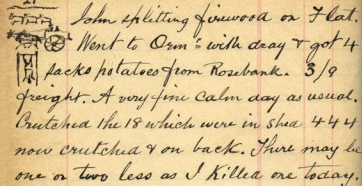 21
John splitting firewood on Flat.
Went to Orm's with dray & got 4
sacks potatoes from Rosebank. 3/9
freight. A very fine calm day as usual.
Crutched the 18 which were in shed 444
now crutched & on back. There may be
one or two less as I killed one today.